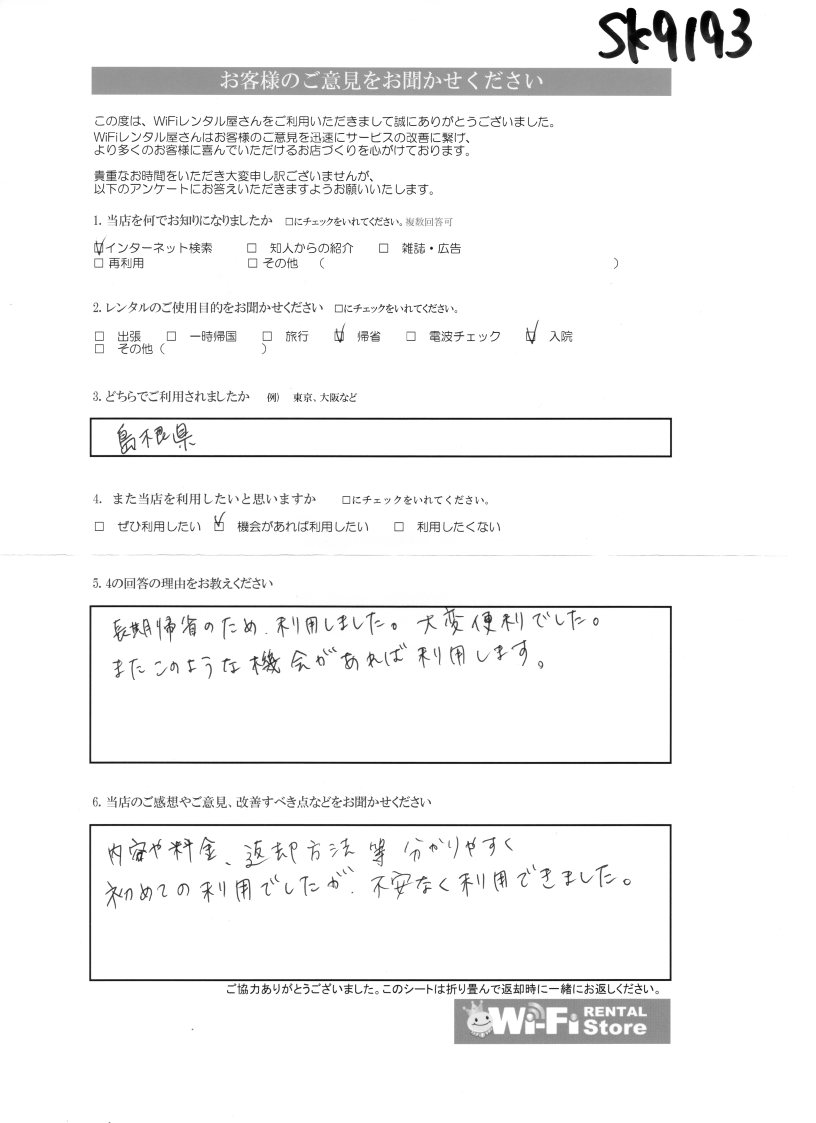 SK9193
お客様のご意見をお聞かせください
この度は、WiFiレンタル屋さんをご利用いただきまして誠にありがとうございました。
WiFiレンタル屋さんはお客様のご意見を迅速にサービスの改善に繋げ、
より多くのお客様に喜んでいただけるお店づくりを心がけております。
貴重なお時間をいただき大変申し訳ございませんが、
以下のアンケートにお答えいただきますようお願いいたします。
1. 当店を何でお知りになりましたか □にチェックをいれてください。複数回答可
☑インターネット検索 □ 知人からの紹介 □ 雑誌・広告
□ 再利用 □ その他 ( )
2. レンタルのご使用目的をお聞かせください □にチェックをいれてください。
□ 出張 □ 一時帰国 □ 旅行 ☑ 帰省 □ 電波チェック ☑ 入院
□ その他 ( )
3. どちらでご利用されましたか 例） 東京、大阪など
島根県
4. また当店を利用したいと思いますか □にチェックをいれてください。
□ ぜひ利用したい ☑ 機会があれば利用したい □ 利用したくない
5. 4の回答の理由をお教えください
長期帰省のため、利用しました。大変便利でした。
またこのような機会があれば利用します。
6. 当店のご感想やご意見、改善すべき点などをお聞かせください
内容や料金、返却方法等分かりやすく
初めての利用でしたが、不安なく利用できました。
ご協力ありがとうございました。このシートは折り畳んで返却時に一緒にお返しください。
Wi-Fi RENTAL Store